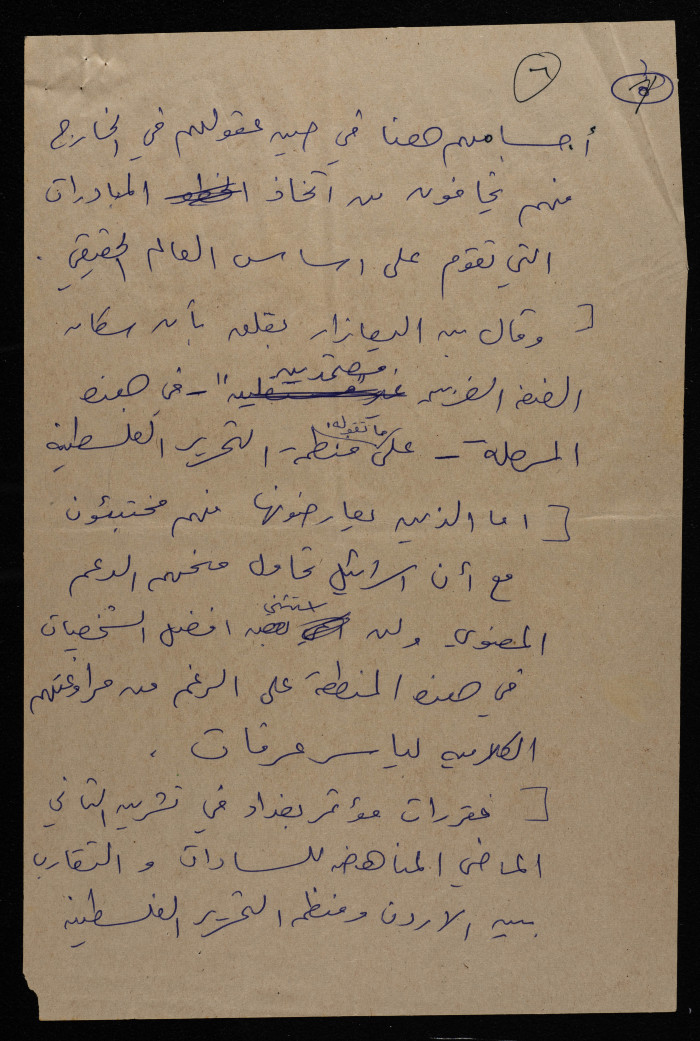 ٦
أجسامهم هنا في حين عقولهم في الخارج
فهم يخافون من اتخاذ المبادرات
التي تقوم على اساس العالم الحقيقي .
[ وقال بن اليعازار بقلق بأن سكان
الضفة الغربية معتمدين - في هذه
المرحلة - على ما تقوله منظمة التحرير الفلسطينية
[ اما الذين يعارضونها فهم مختبئون
مع أن اسرائيل تحاول منحهم الدعم
المعنوي ولن استثني افضل الشخصيات
في هذه المنطقة على الرغم من مراوغتهم
الكلامية لياسر عرفات .
[ فقرارات مؤتمر بغداد في تشرين الثاني
الماضي المناهضة للسادات و التقارب
بين الاردن ومنظمة التحرير الفلسطينية